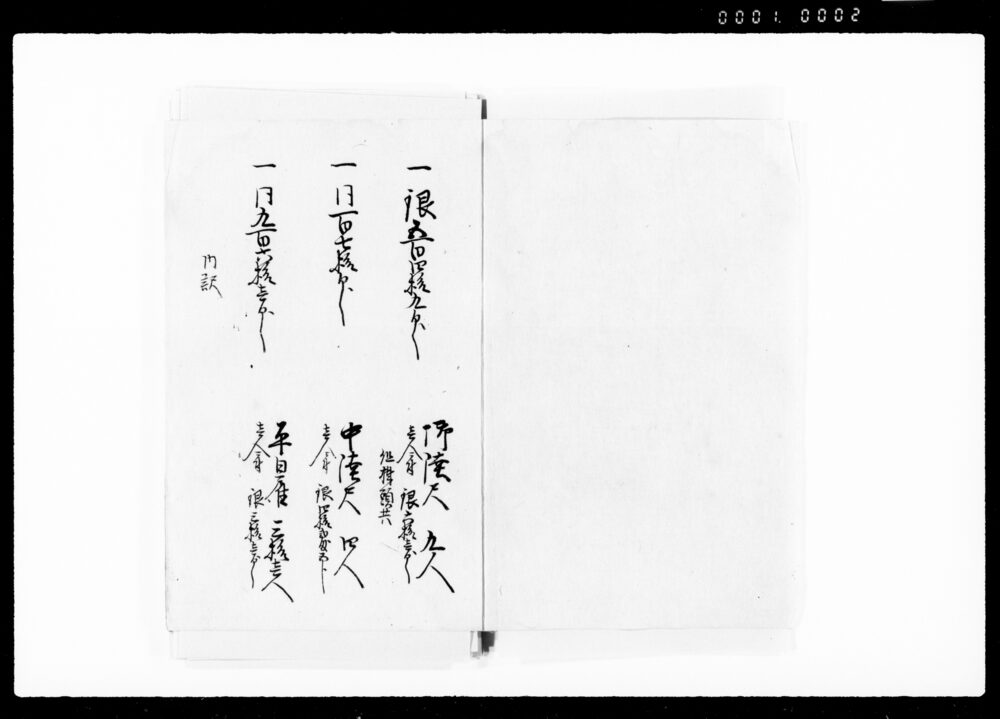 0001. 0002
一 銀五百四拾九匁
御陸尺 九人
壱人ニ付 銀六拾壱匁
但棒頭共
一 同百七拾匁
中陸尺 四人
壱人ニ付 銀四拾弐匁五分
一 同九百六拾壱匁
平日雇 三拾壱人
壱人ニ付 銀三拾壱匁
内訳